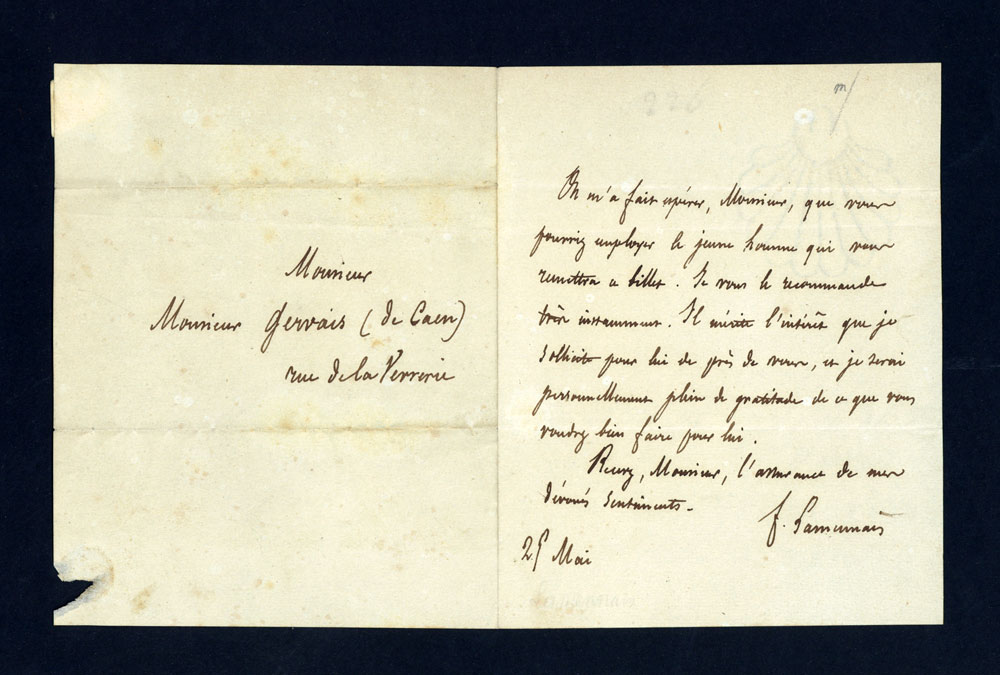 Monsieur
Monsieur Gervais (de Caen)
rue de la Verrerie
On m'a fait espérer, Monsieur, que vous
pourriez employer le jeune homme qui vous
remettra ce billet. Je vous le recommande
très instamment. Il mérite l'intérêt que je
sollicite pour lui de près de vous, et je serai
personnellement plein de gratitude de ce que vous
voudrez bien faire pour lui.
Recevez, Monsieur, l'assurance de mes
dévoués sentiments.
F. Lamennais
25 Mai